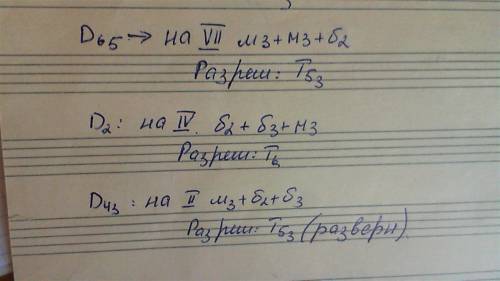 D₆₅ → на VII м3+м3+б2
Разреш: T₅₃
D₂: на IV. б2+б3+м3
Разреш: T₆
D₄₃: на II м3+б2+б3
Разреш: T₅₃ (разверн).